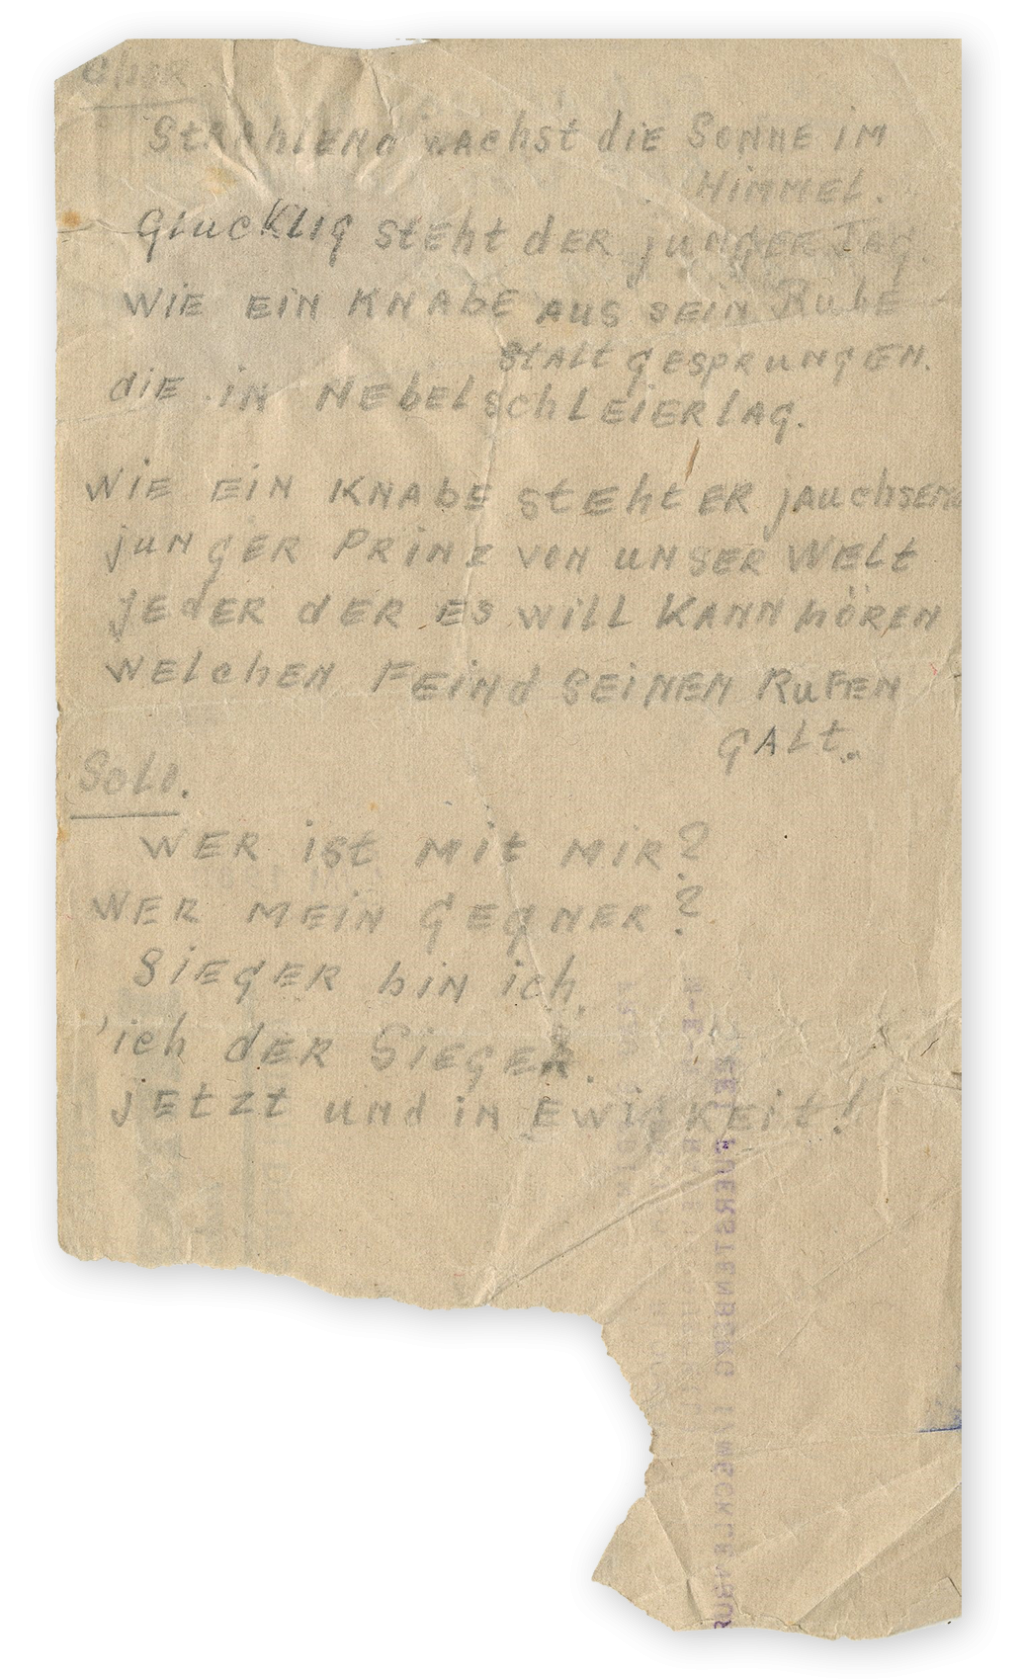 Chor
Strahlend wachst die Sonne im
Himmel.
Glucklig steht der junger Tag.
wie ein Knabe aus sein Ruhe
stalt gesprungen.
die in Nebelschleierlag.
wie ein Knabe steht er jauchsend
junger Prinz von unser Welt
jeder der es will kann hören
welchen Feind seinen Rufen
galt.
Solo.
wer ist mit mir?
wer mein Gegner?
Sieger bin ich.
'ich der Sieger.
jetzt und in Ewigkeit!
FUERSTENBERG I/MECKLENBUR